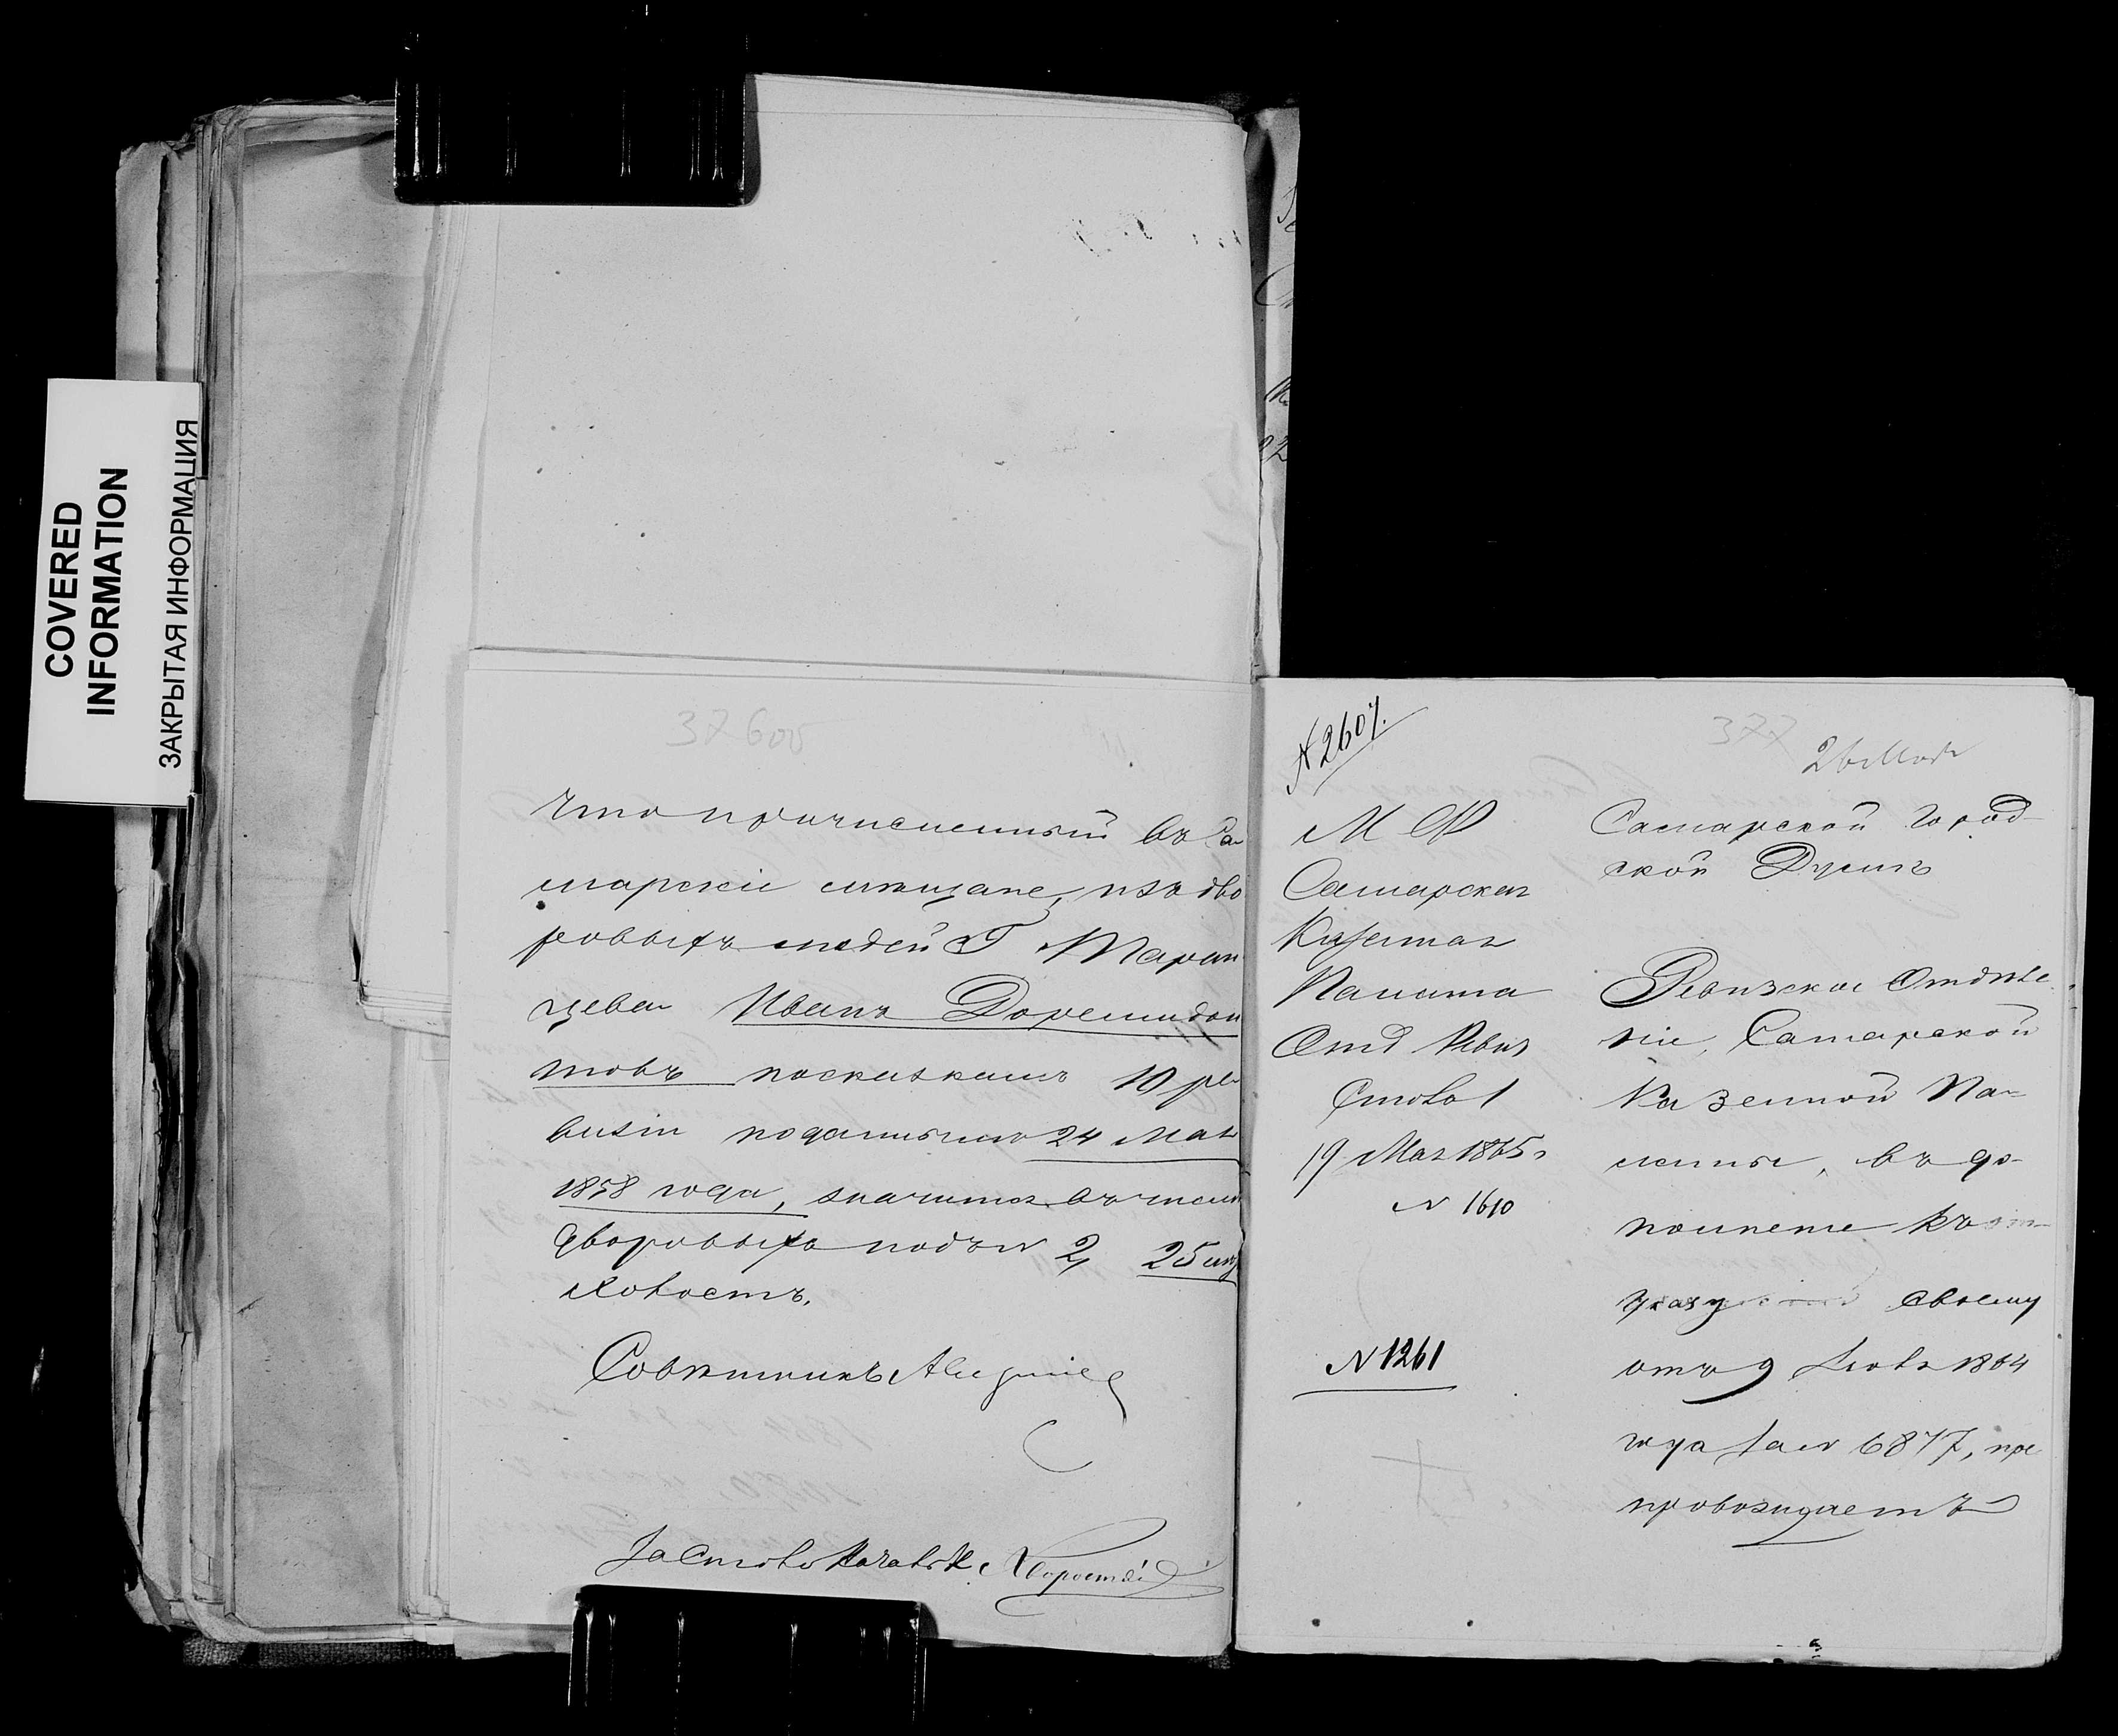 COVERED
INFORMATION
ЗАКРЫТАЯ ИНФОРМАЦИЯ
37600
что причисленный въ Са
марскіе мѣщане, изъ дво
ровыхъ людей Г
цева Иванъ Доремидон
товъ посказкамъ 10 ре
визіи поданнымъ 24 Мая
1858 года, значится въ числѣ
дворовыхъ подъ № 2, 25
Совѣтникъ
За Столоначальн.
№ 2607.
М Ф
Самарская
Казенная
Палата
Отд Ревиз
Столъ 1
19 Мая 1865 г
№ 1610
№ 1261
377
26 Мая
Самарской город
ской Думѣ
Ревизское Отдѣле
ніе, Самарской
Казенной Па-
латы, въ до-
полненіе къ
указу своему
отъ 9 1864
года за № 6877, пре
провождаетъ